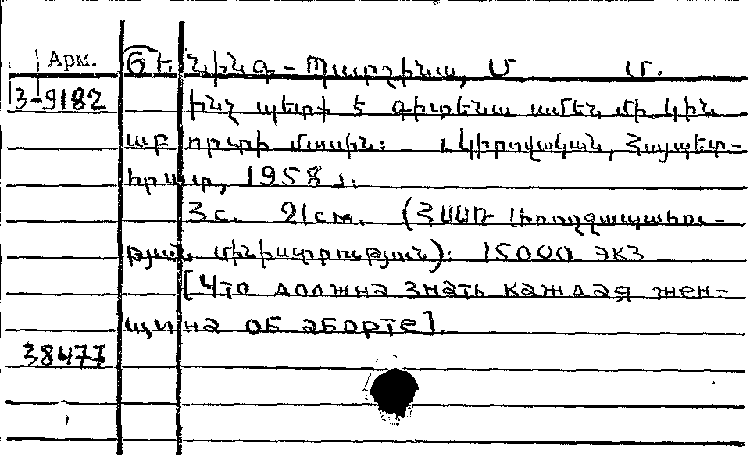 Арм.
Ծե նինգ - Պարշինա, Մ. Մ.
3-9182
Ինչ պետք է գիտենա ամեն մի կին
աբորտի մասին: Կիրովական, Հայպետ-
հրատ, 1958 թ.
3с. 21см. (ՀՍՍՌ Առողջապահու-
թյան մինիստրություն): 15000 экз
[Что должна знать каждая жен-
щина об аборте].
38477